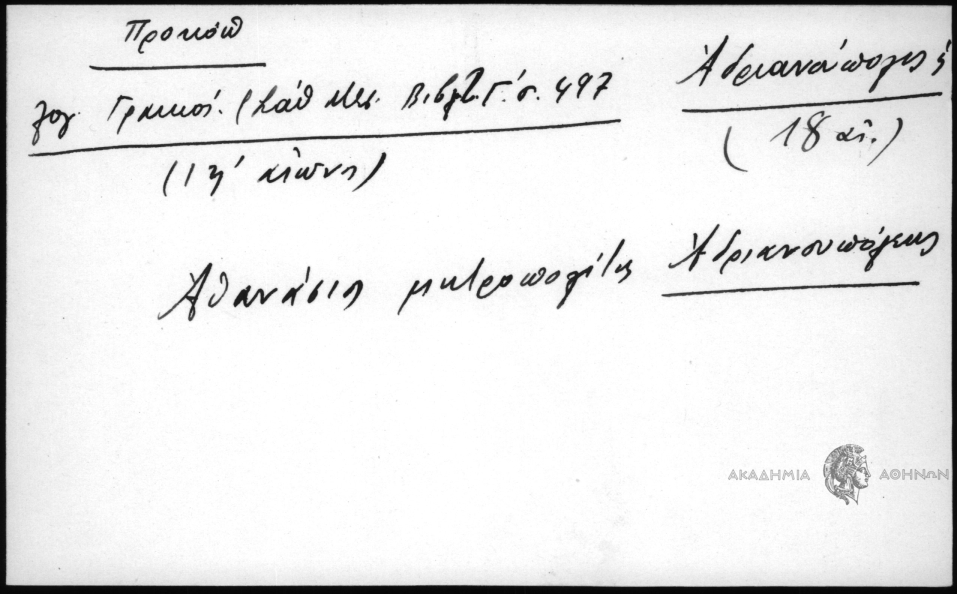 Προκόπ
λογ. Γραικοί. (Σάθ Μεσ. Βιβλ. Γ΄. σ. 497
(ιη΄ αἰῶνος)
Ἀδριανόπολις ἡ
(18 αἰ.)
Ἀθανάσιος μητροπολίτης Ἀδριανουπόλεως
ΑΚΑΔΗΜΙΑ ΑΘΗΝΩΝ